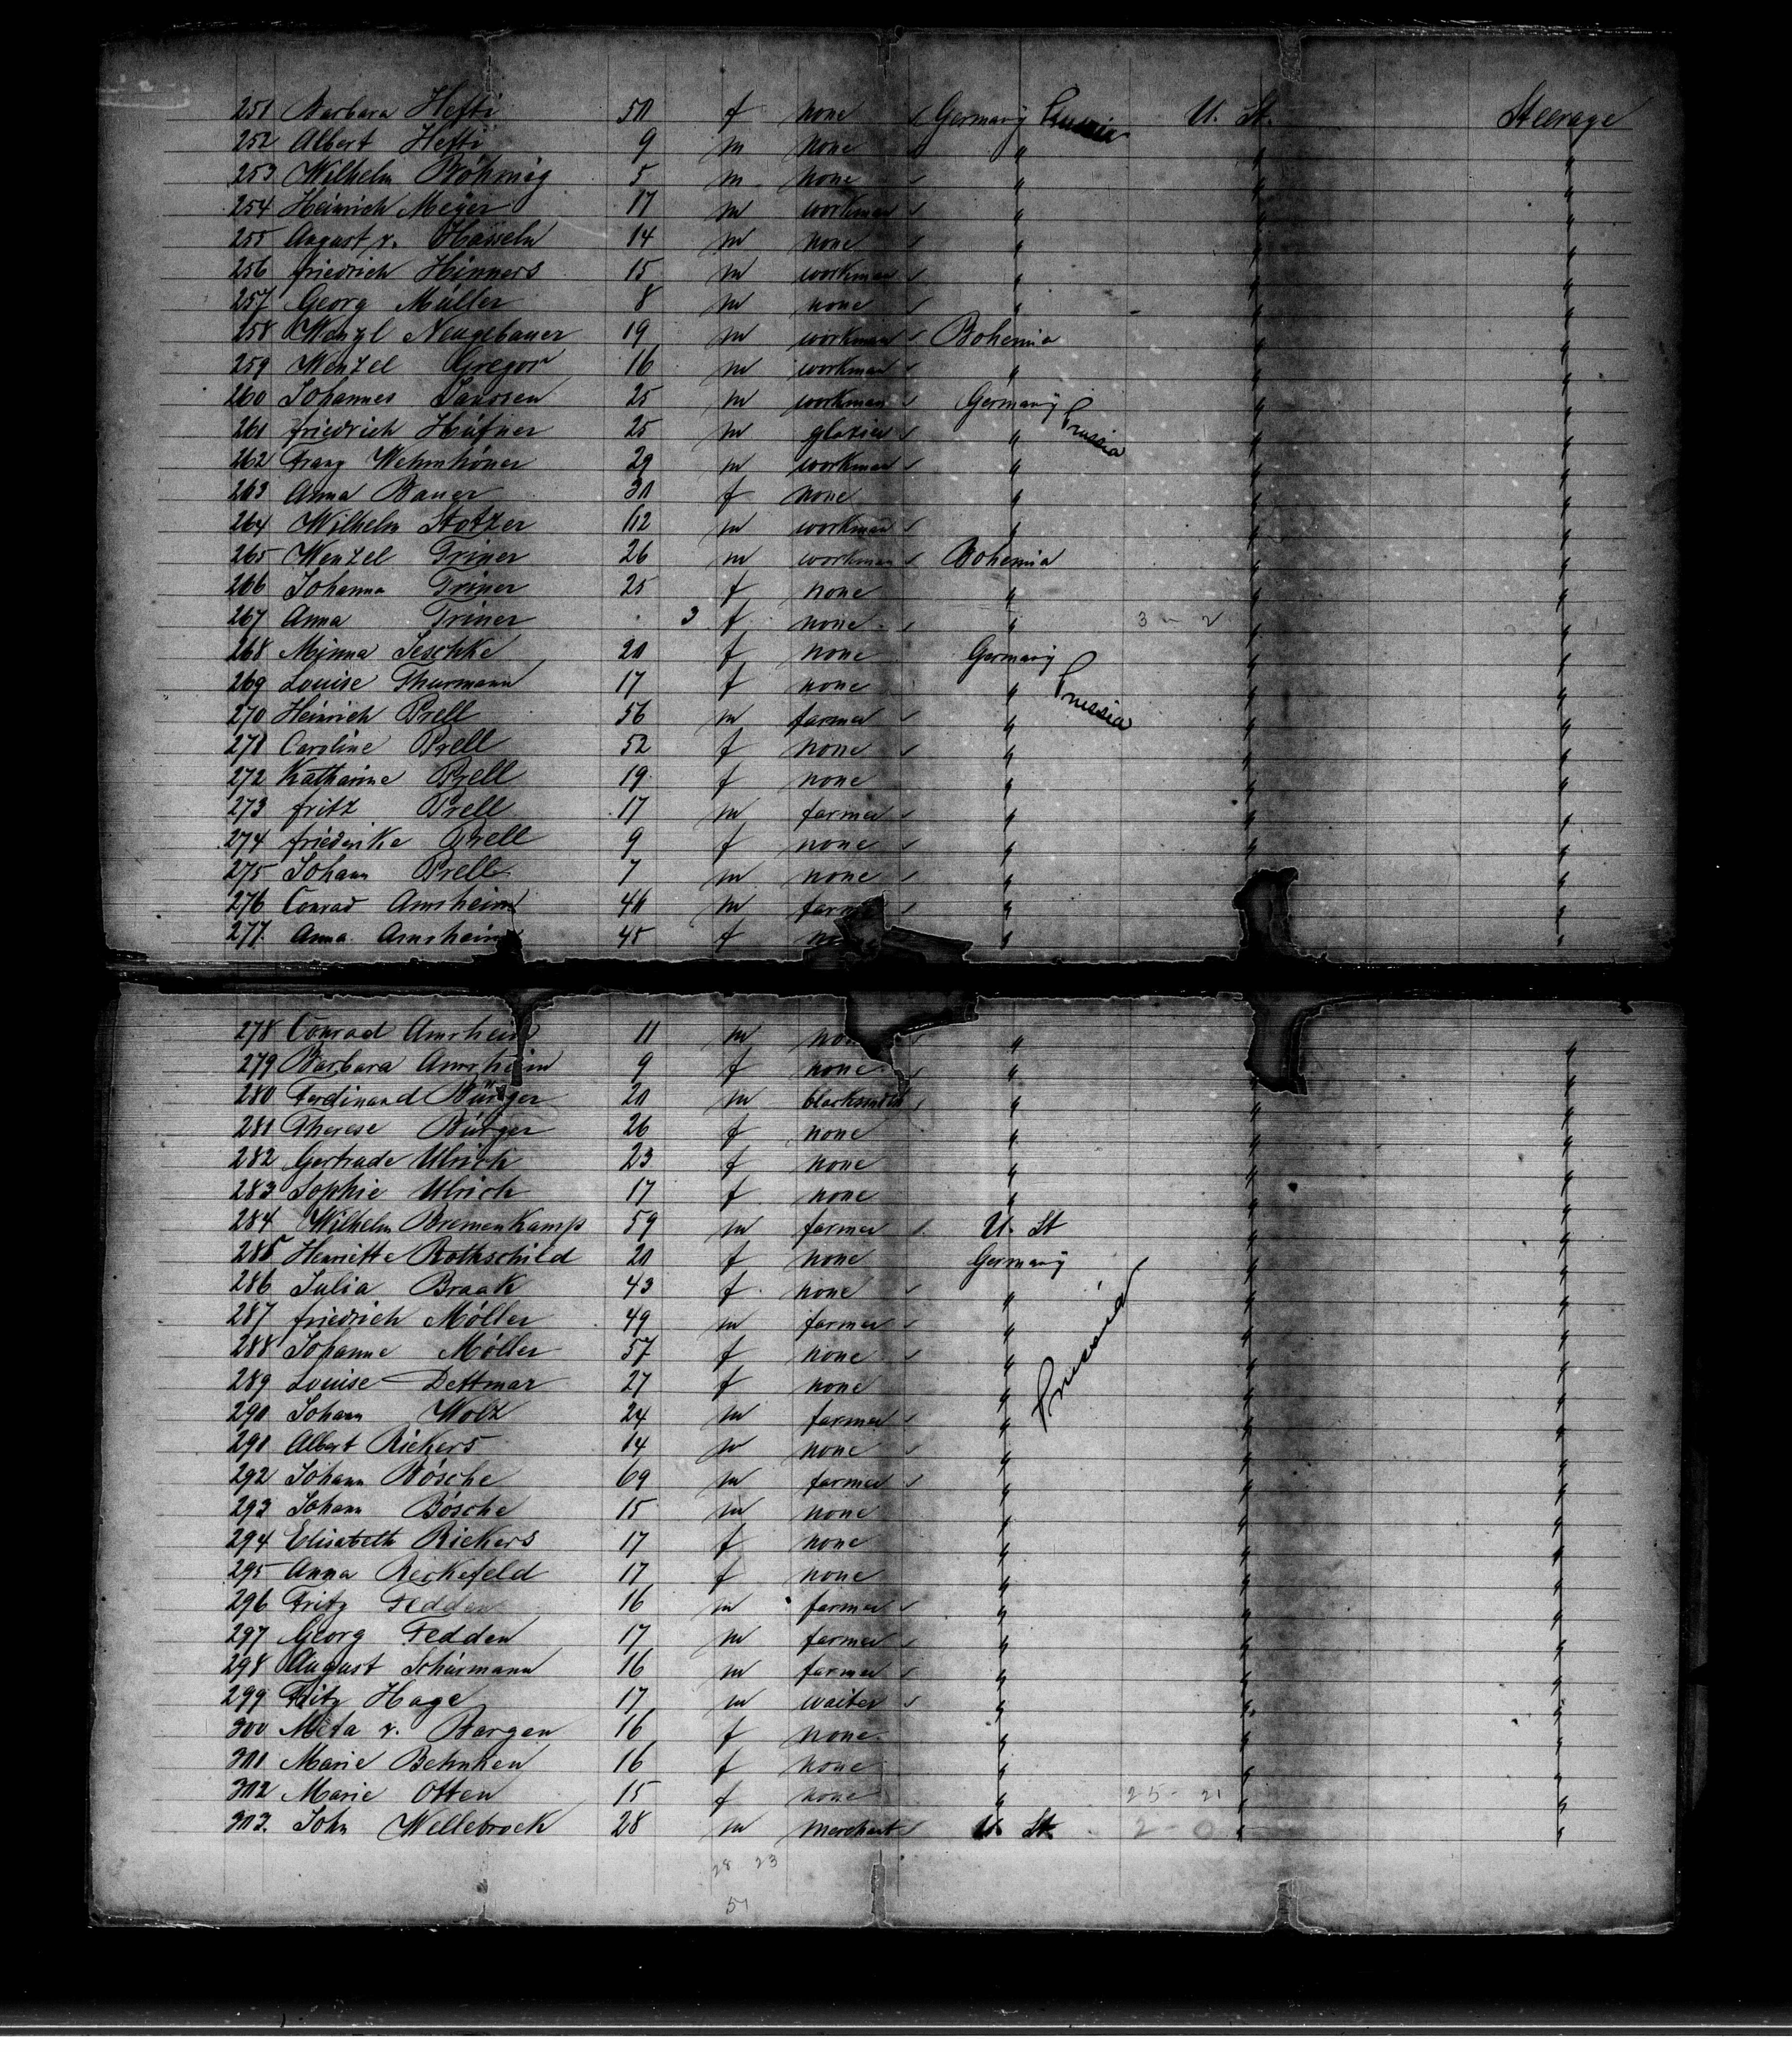 251 Barbara Hefti 50 f none ✓ Germany Prussia U. St. Steerage
252 Albert Hefti 9 m none ✓ " " "
253 Wilhelm Böhmig 5 m none ✓ " " "
254 Heinrich Meÿer 17 m workman ✓ " " "
255 August v. Hasseln 14 m none ✓ " " "
256 Friedrich Hinners 15 m workman ✓ " " "
257 Georg Müller 8 m none ✓ " " "
258 Wenzl Neugebauer 19 m workman ✓ Bohemia " "
259 Wenzel Gregor 16 m workman ✓ " " "
260 Johannes Janssen 25 m workman ✓ Germany Prussia " "
261 Friedrich Häfner 25 m glazier ✓ " " "
262 Franz Wehmhöner 29 m workman ✓ " " "
263 Anna Bauer 30 f none " " "
264 Wilhelm Stotzer 62 m workman ✓ " " "
265 Wenzel Triner 26 m workman ✓ Bohemia " "
266 Johanna Triner 25 f none " " "
267 Anna Triner 3 f none ✓ " 3 - 2 " "
268 Minna Jeschke 20 f none Germany " "
269 Louise Thurmann 17 f none " Prussia " "
270 Heinrich Prell 56 m farmer ✓ " " "
271 Caroline Prell 52 f none ✓ " " "
272 Katharine Prell 19 f none " " "
273 Fritz Prell 17 m farmer ✓ " " "
274 Friederike Prell 9 f none ✓ " " "
275 Johann Prell 7 m none ✓ " " "
276 Conrad Amrheim 40 m farmer ✓ " "
277. Anna Amrheim 45 f none " "
278 Conrad Amrheim 11 m none ✓ " "
279 Barbara Amrheim 9 f none ✓ " "
280 Ferdinand Bürger 20 m blacksmith ✓ " " "
281 Therese Bürger 26 f none " " "
282 Gertrude Ulrich 23 f none " " "
283 Sophie Ulrich 17 f none " " "
284 Wilhelm Bremenkamp 59 m farmer ✓ U. St " "
285 Henriette Rothschild 20 f none Germany " "
286 Julia Braak 43 f none ✓ " Prussia " "
287 Friedrich Möller 49 m farmer ✓ " " "
288 Johanne Möller 57 f none ✓ " " "
289 Louise Dettmar 27 f none " " "
290 Johann Wolz 24 m farmer ✓ " " "
291 Albert Rickers 14 m none ✓ " " "
292 Johann Bösche 69 m farmer ✓ " " "
293 Johann Bösche 15 m none " " "
294 Elisabeth Rickers 17 f none " " "
295 Anna Reichefeld 17 f none " " "
296 Fritz Fedden 16 m farmer ✓ " " "
297 Georg Fedden 17 m farmer ✓ " " "
298 August Schürmann 16 m farmer ✓ " " "
299 Fritz Hage 17 m waiter ✓ " " "
300 Meta v. Bargen 16 f none " " "
301 Marie Behnken 16 f none " " "
302 Marie Otten 15 f none " 25 - 21 " "
303. John Wellebrock 28 m merchant ✓ U. St. 2 - 0 " "
28 23
51